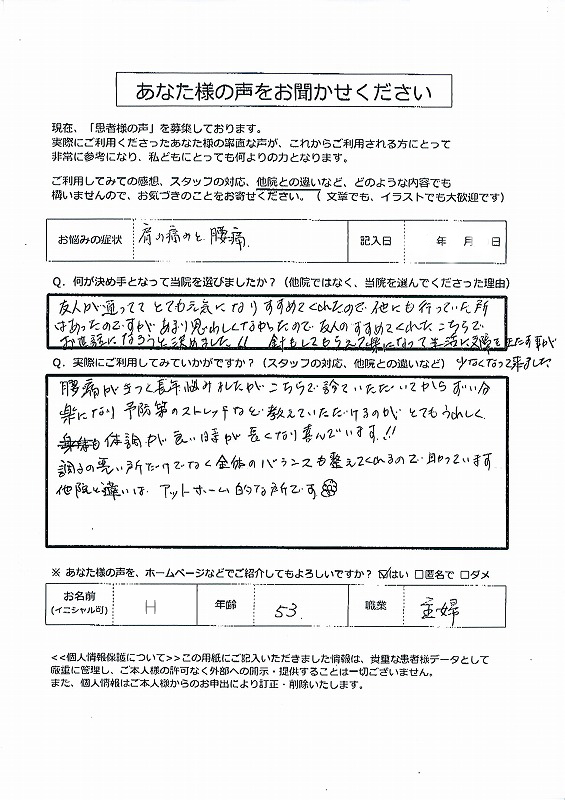 あなた様の声をお聞かせください
現在、「患者様の声」を募集しております。
実際にご利用くださったあなた様の率直な声が、これからご利用される方にとって
非常に参考になり、私どもにとっても何よりの力となります。
ご利用してみての感想、スタッフの対応、他院との違いなど、どのような内容でも
構いませんので、お気づきのことをお寄せください。（ 文章でも、イラストでも大歓迎です）
お悩みの症状 肩の痛みと、腰痛、 記入日 年 月 日
Q．何が決め手となって当院を選びましたか？（他院ではなく、当院を選んでくださった理由）
友人が通ってて とても元気になり すすめてくれたので 他にも行っていた所
はあったのですが あまり思わしくなかったので 友人のすすめてくれた こちらで
お世話になろうと決めました!! 針もしてもらえて 楽になって 生活に支障をきたす事が
少なくなって来ました
Q．実際にご利用してみていかがですか？（スタッフの対応、他院との違いなど）
腰痛がきつく長年悩みましたが こちらで診ていただいてから ずい分
楽になり 予防策のストレッチなど 教えていただけるのが とてもうれしく
体調が良いほうが 長くなり 喜んでいます.!!
調子の悪い所だけでなく 全体のバランスも整えてくれるので 助っています
他院と違いは アットホーム的な所です
※ あなた様の声を、ホームページなどでご紹介してもよろしいですか？ ☑はい □匿名で □ダメ
お名前 (イニシャル可) H 年齢 53. 職業 主婦
<<個人情報保護について>>この用紙にご記入いただきました情報は、貴重な患者様データとして
厳重に管理し、ご本人様の許可なく外部への開示・提供することは一切ございません。
また、個人情報はご本人様からのお申出により訂正・削除いたします。